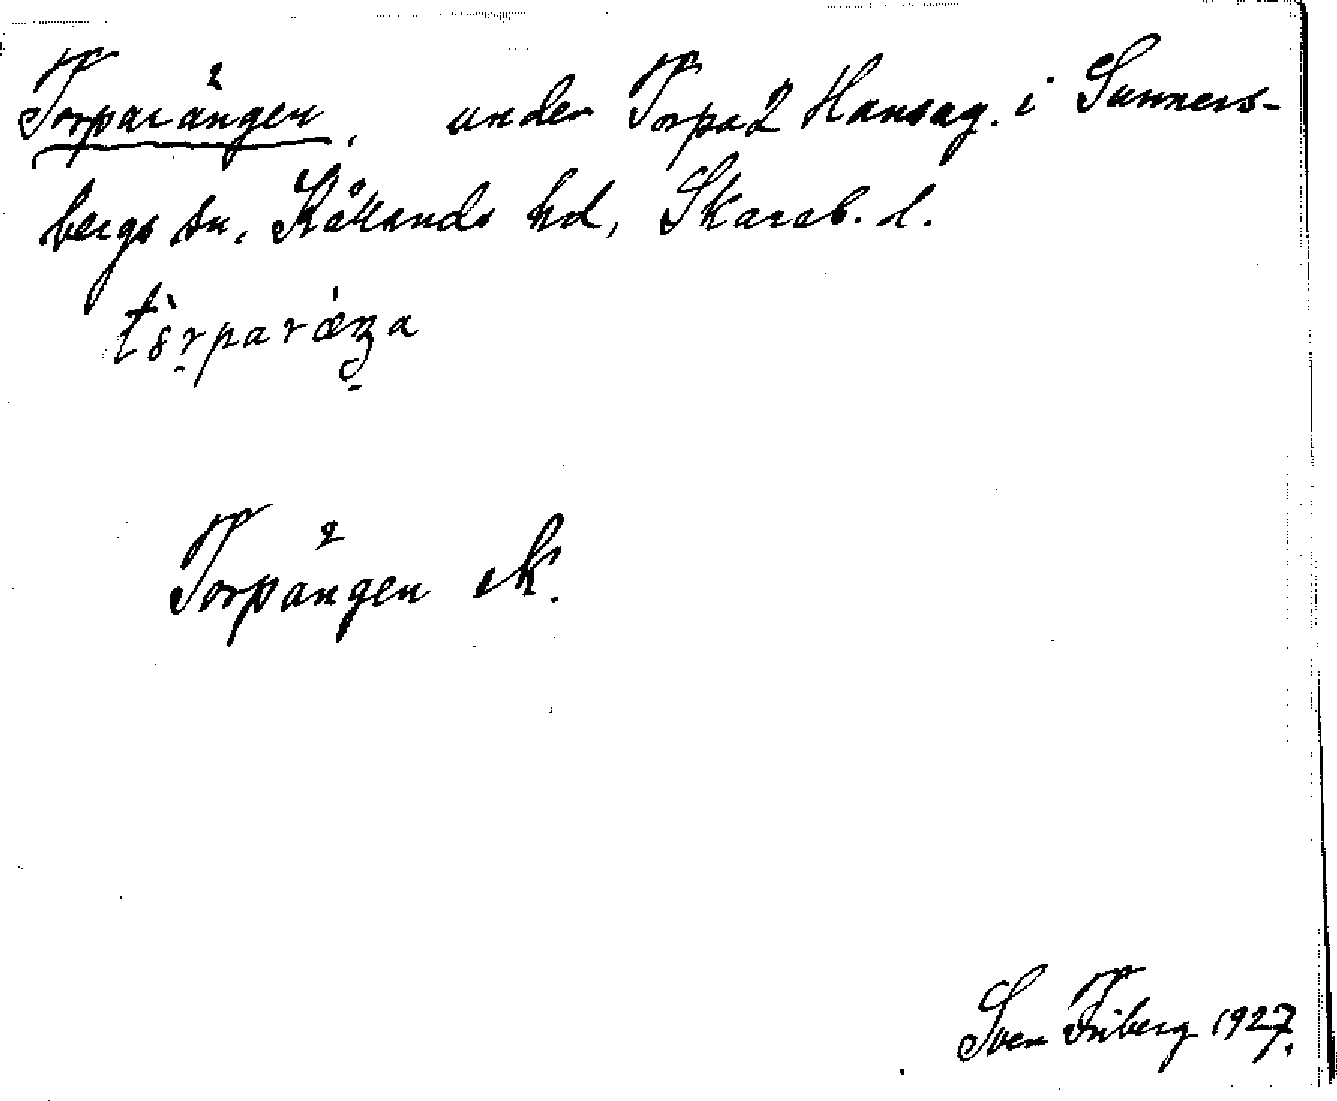 Torparängen, under Torpa 2 Hansag. i Sunners-
bergs sn, Kållands hd, Skarab. l.
Torpängen ek.
Sven Friberg 1927.